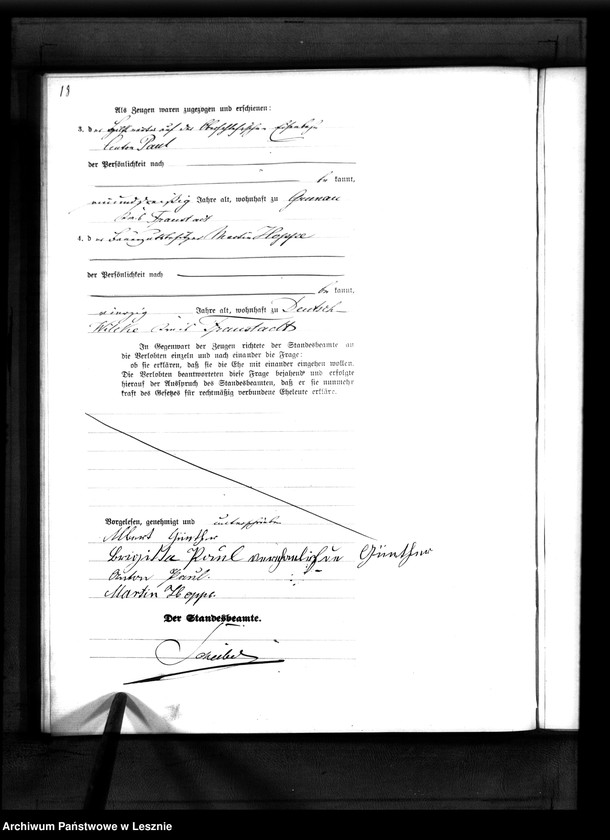 18
Als Zeugen waren zugezogen und erschienen:
3. der auf der Oberschlesischen Eisenbahn
Anton Paul
der Persönlichkeit nach
be kannt,
neununddreißig Jahre alt, wohnhaft zu Grunau
Kreis Fraustadt
4. der Bauergutsbesitzer Martin Hoppe
der Persönlichkeit nach
be kannt,
vierzig Jahre alt, wohnhaft zu Deutsch-
Wilke Kreis Fraustadt
In Gegenwart der Zeugen richtete der Standesbeamte an
die Verlobten einzeln und nach einander die Frage:
ob sie erklären, daß sie die Ehe mit einander eingehen wollen.
Die Verlobten beantworteten diese Frage bejahend und erfolgte
hierauf der Ausspruch des Standesbeamten, daß er sie nunmehr
kraft des Gesetzes für rechtmäßig verbundene Eheleute erkläre.
Vorgelesen, genehmigt und unterschrieben
Albert Günther
Brigitta Paul verehelichte Günther
Anton Paul.
Martin Hoppe.
Der Standesbeamte.
Scheibel
Archiwum Państwowe w Lesznie